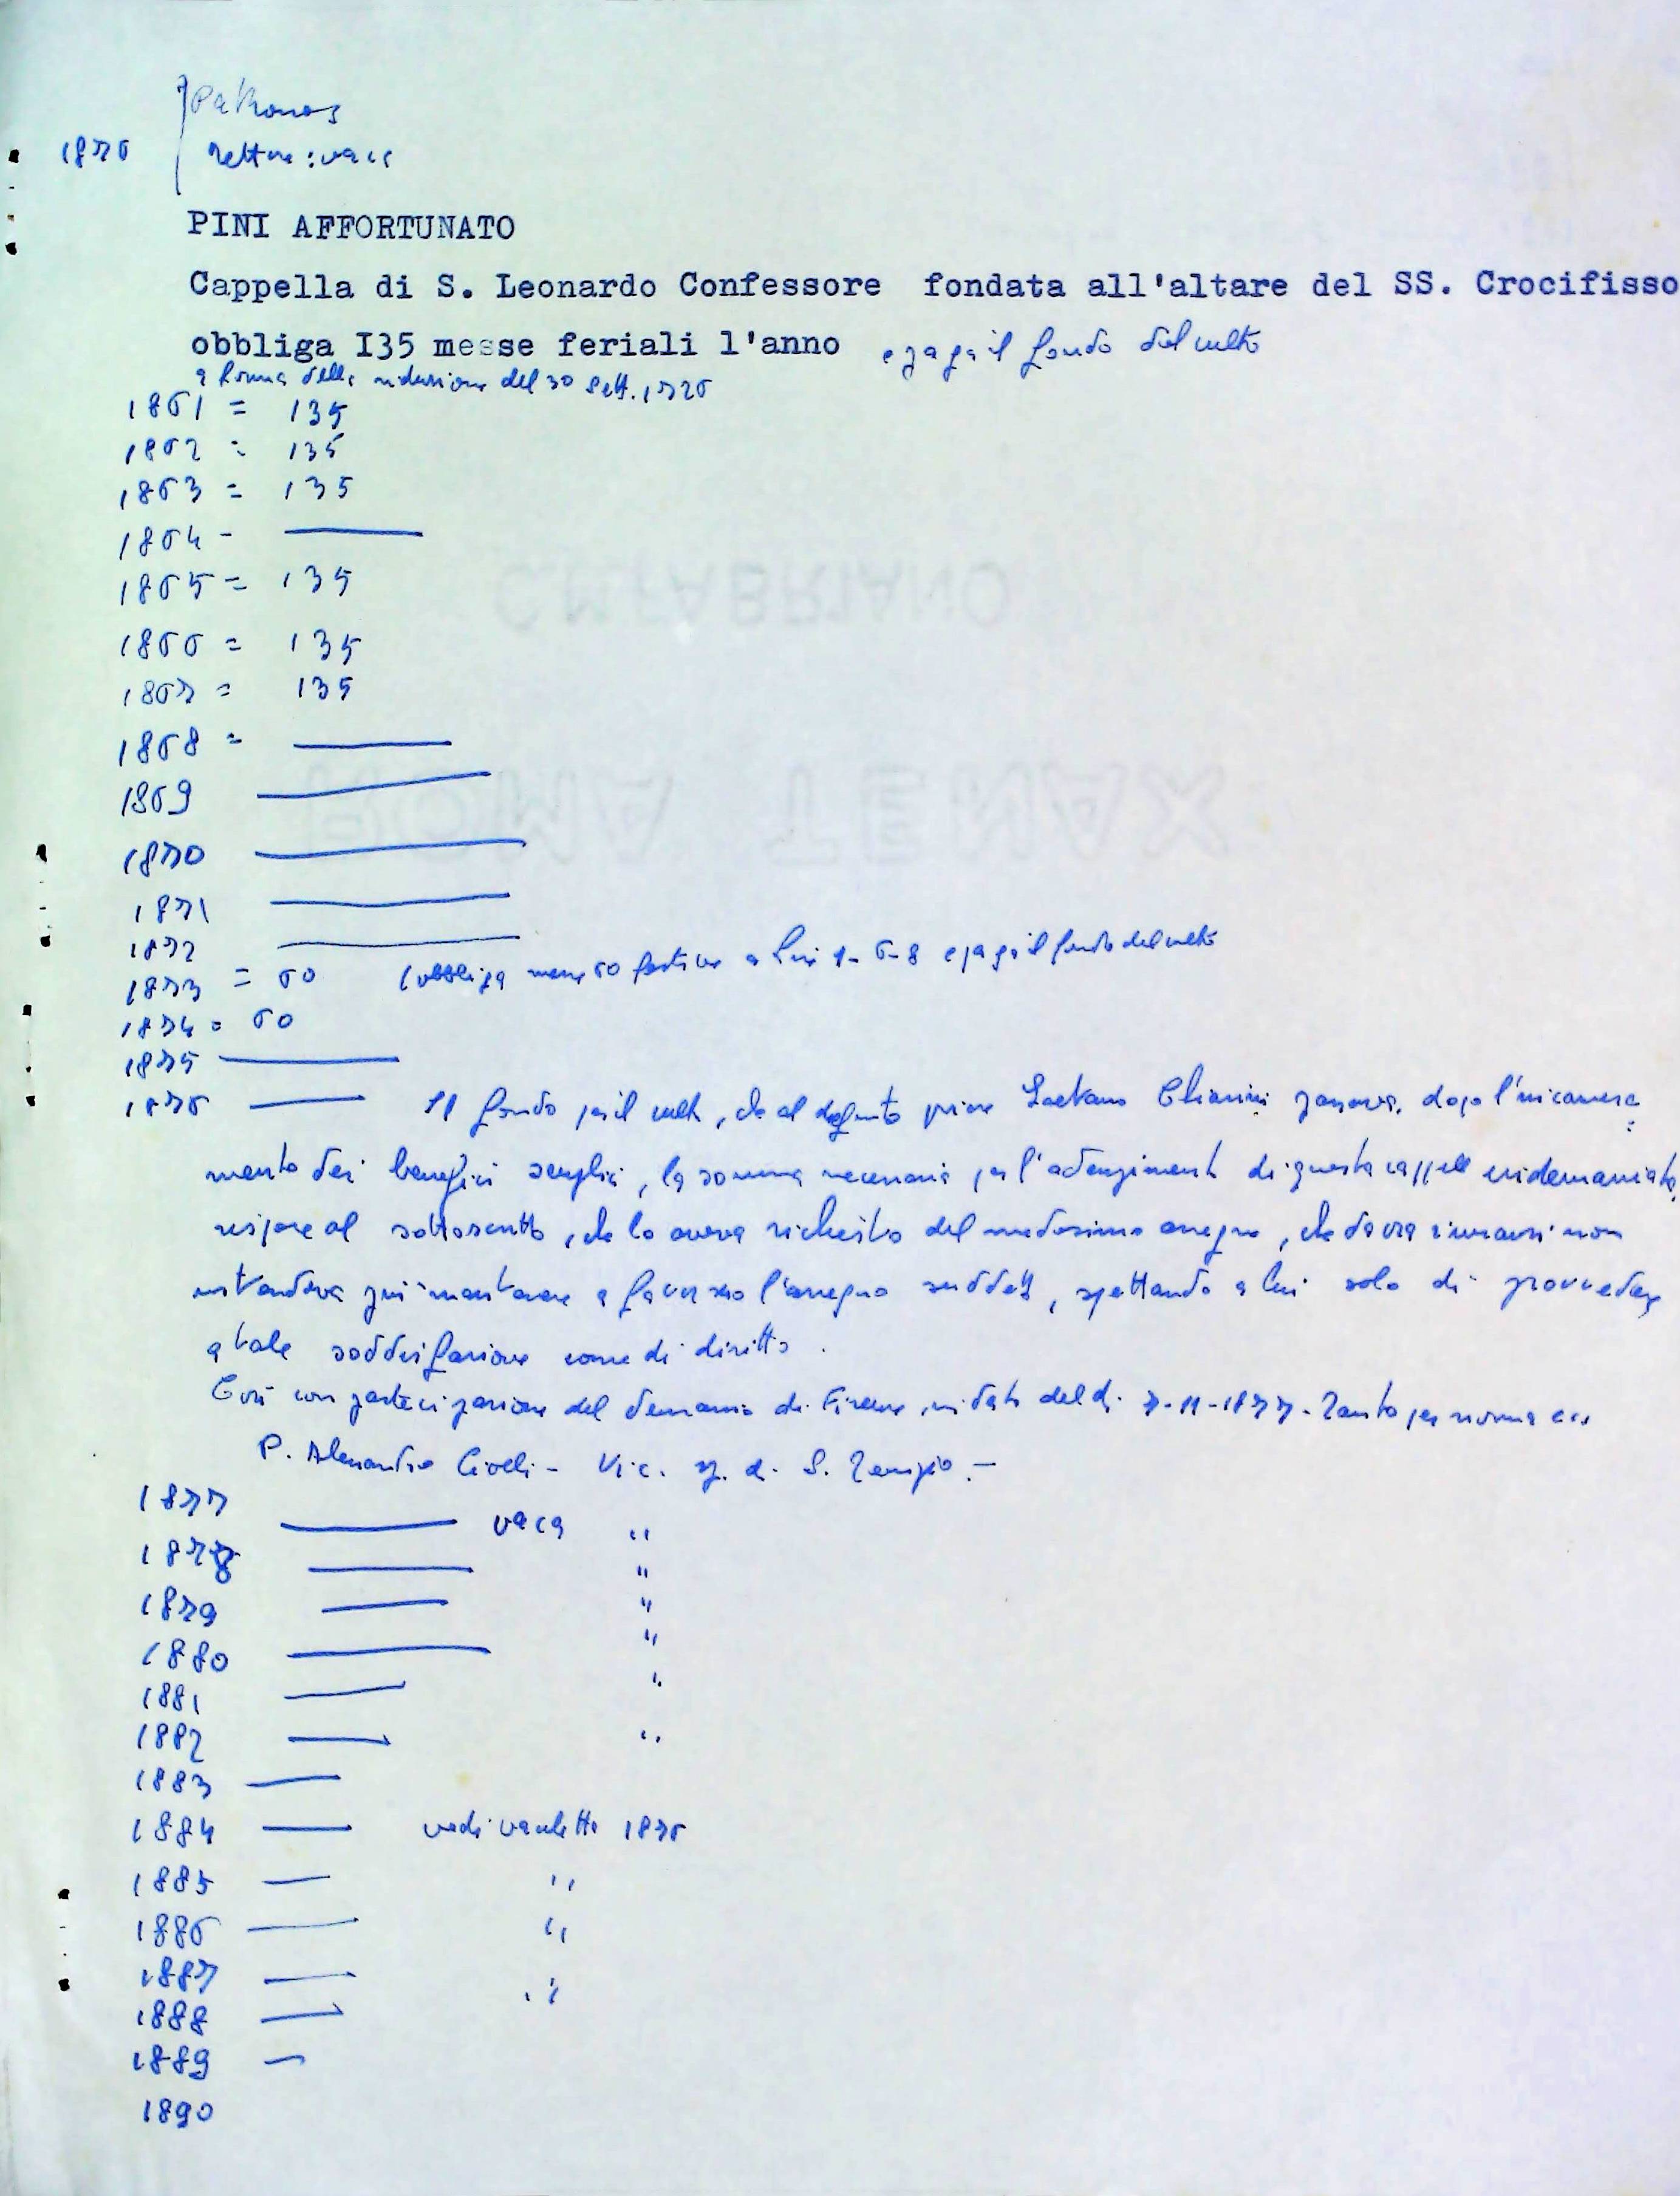 Patronos
1876 Rettore: vaca
PINI AFFORTUNATO
Cappella di S. Leonardo Confessore fondata all'altare del SS. Crocifisso
obbliga I35 messe feriali l'anno e paga il fondo del culto
a forma della riduzione del 30 Sett. 1726
1861 = 135
1862 = 135
1863 = 135
1864 -
1865 = 135
1866 = 135
1867 = 135
1868 =
1869
1870
1871
1872
1873 = 60 (obbliga messe 60 festive a lire 1-6-8 e paga il fondo del culto
1874 = 60
1875
1876 Il fondo per il culto, che al defunto priore Gaetano Chiarini passava, dopo l'incamera
mento dei benefici semplici, la somma necessaria per l'adempimento di questa cappella indemaniata,
rispose al sottoscritto, che lo aveva richiesto del medesimo assegno, che da ora innanzi non
intendeva più mantenere a favor suo l'assegno suddetto, spettando a lui solo di provvedere
a tale soddisfazione come di diritto.
Così con partecipazione del demanio di Firenze in data del dì 7-11-1877. Tanto per norma ecc
P. Alessandro Civelli - Vic. sp. di S. Remigio.-
1877 vaca "
1878 "
1879 "
1880 "
1881 "
1882 "
1883
1884 vedi vacchetta 1876
1885 "
1886 "
1887 "
1888
1889
1890
C.M.FABRIANO
ROMA TENAX